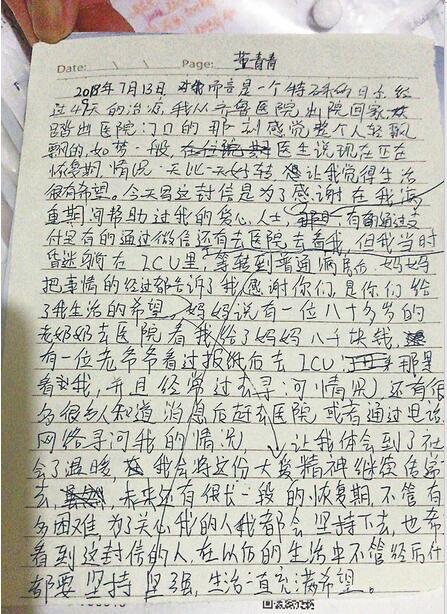 Date: Page: 董青青
2018年7月13日 对我而言是一个特殊的日子经
过49天的治疗,我从齐鲁医院出院回家,
踏出医院门口的那刻感觉整个人轻飘
飘的,如梦一般,医生说现在正在
恢复期,情况一天比一天好转 让我觉得生活
很有希望。今天写这封信是为了感谢在我病
重期间帮助过我的爱心人士,有的通过支
付宝有的通过微信还有去医院去看我,但我当时
昏迷躺在ICU里,等转到普通病房后,妈妈
把事情的经过都告诉了我,感谢你们,是你们给
了我生活的希望,妈妈说有一位八十多岁的
老奶奶去医院看我给了妈妈八千块钱,
有一位老爷爷看过报纸后去ICU那里
看我,并且经常过去寻问情况,还有很
多很多人知道消息后赶去医院或者通过电话
网络寻问我的情况 让我体会到了社
会了温暖,我会将这份大爱精神继续传递
去,未来还有很长一段的恢复期,不管有
多困难,为了关心我的人我都会坚持下去,也希
看到这封信的人,在以后的生活中不管经历什
都要坚持 坚强,生活一直充满希望。